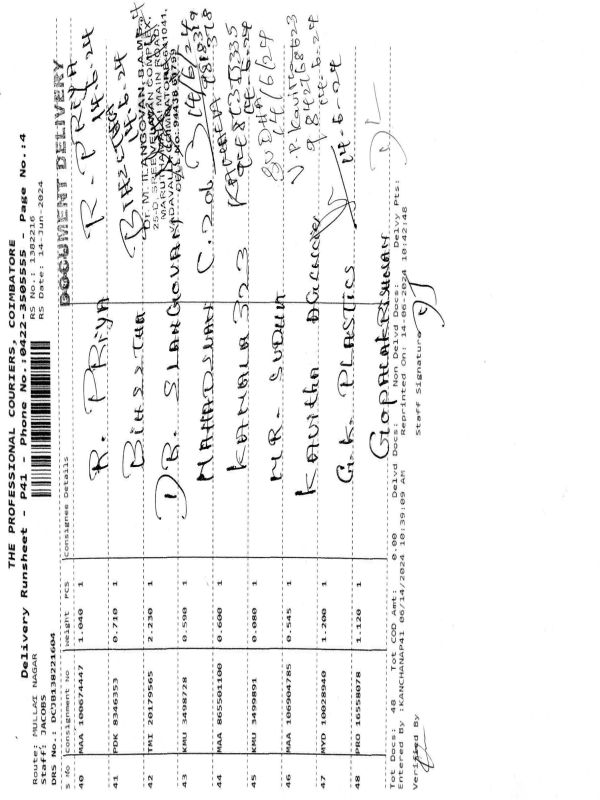 THE PROFESSIONAL COURIERS, COIMBATORE
Delivery Runsheet - P41 - Phone No.:0422-3505555 - Page No.:4
Route: MULLAI NAGAR
RS No.: 1382216
Staff: JACOBS
RS Date: 14-Jun-2024
DRS No.: DCJB138221604
S No Consignment No Weight PCS Consignee Details
DOCUMENT DELIVERY
40 MAA 100674447 1.040 1 R. PRiyA R. PRiyA
14-6-24
41 PDK 8346353 0.710 1
14-6-24
42 TMI 20179565 2.230 1 DR. SLANGOVAN
Dr. M. ILANGOVAN, B.A.M.S
25-D, SREE VELAVAN COMPLEX,
MARUTHAMALAI MAIN ROAD,
VADAVALLI, COIMBATORE-641041.
43 KMU 3498728 0.590 1
14/6/24
44 MAA 865501100 0.600 1 KAMALA
14-6-24
45 KMU 3499891 0.080 1 MR. SUDHA SUDHA
14/6/24
46 MAA 106904785 0.545 1 KAVITHA AGENCIES V.P. Kavitha
14-6-24
47 MYD 10028940 1.200 1 G.K. PLASTICS
14-6-24
48 PRO 16558078 1.120 1 GOPALAKRISHNAN
Tot Docs: 48 Tot COD Amt: 0.00 Delvd Docs: Non Delvd Docs: Delvy Pts:
Entered By :KANCHANAP41 06/14/2024 10:39:09 AM Reprinted On: 14-06-2024 10:42:48
Verified By
Staff Signature